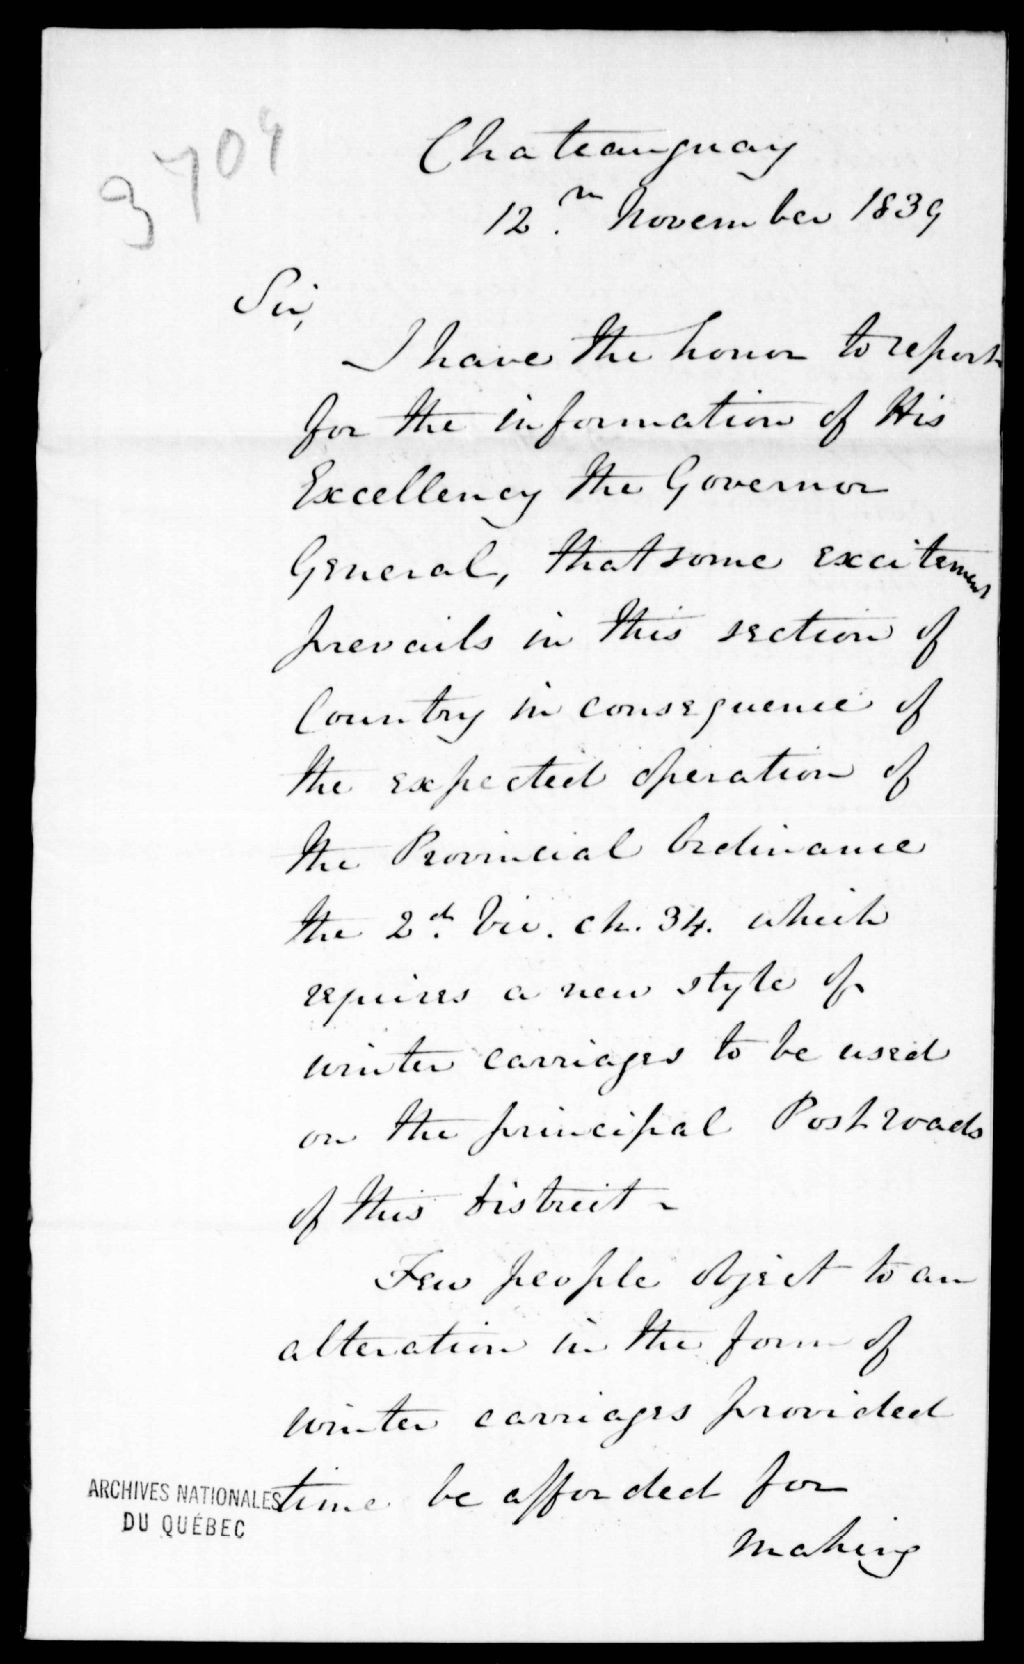 3704
Chateauguay
12th November 1839
Sir,
I have the honor to report
for the information of His
Excellency the Governor
General, that some excitement
prevails in this section of
Country in consequence of
the expected operation of
the Provincial Ordinance
the 2d. Vic. ch. 34. which
requires a new style of
winter carriages to be used
on the principal Post roads
of this District -
Few people object to an
alteration in the form of
winter carriages provided
time be afforded for
making
ARCHIVES NATIONALES
DU QUÉBEC